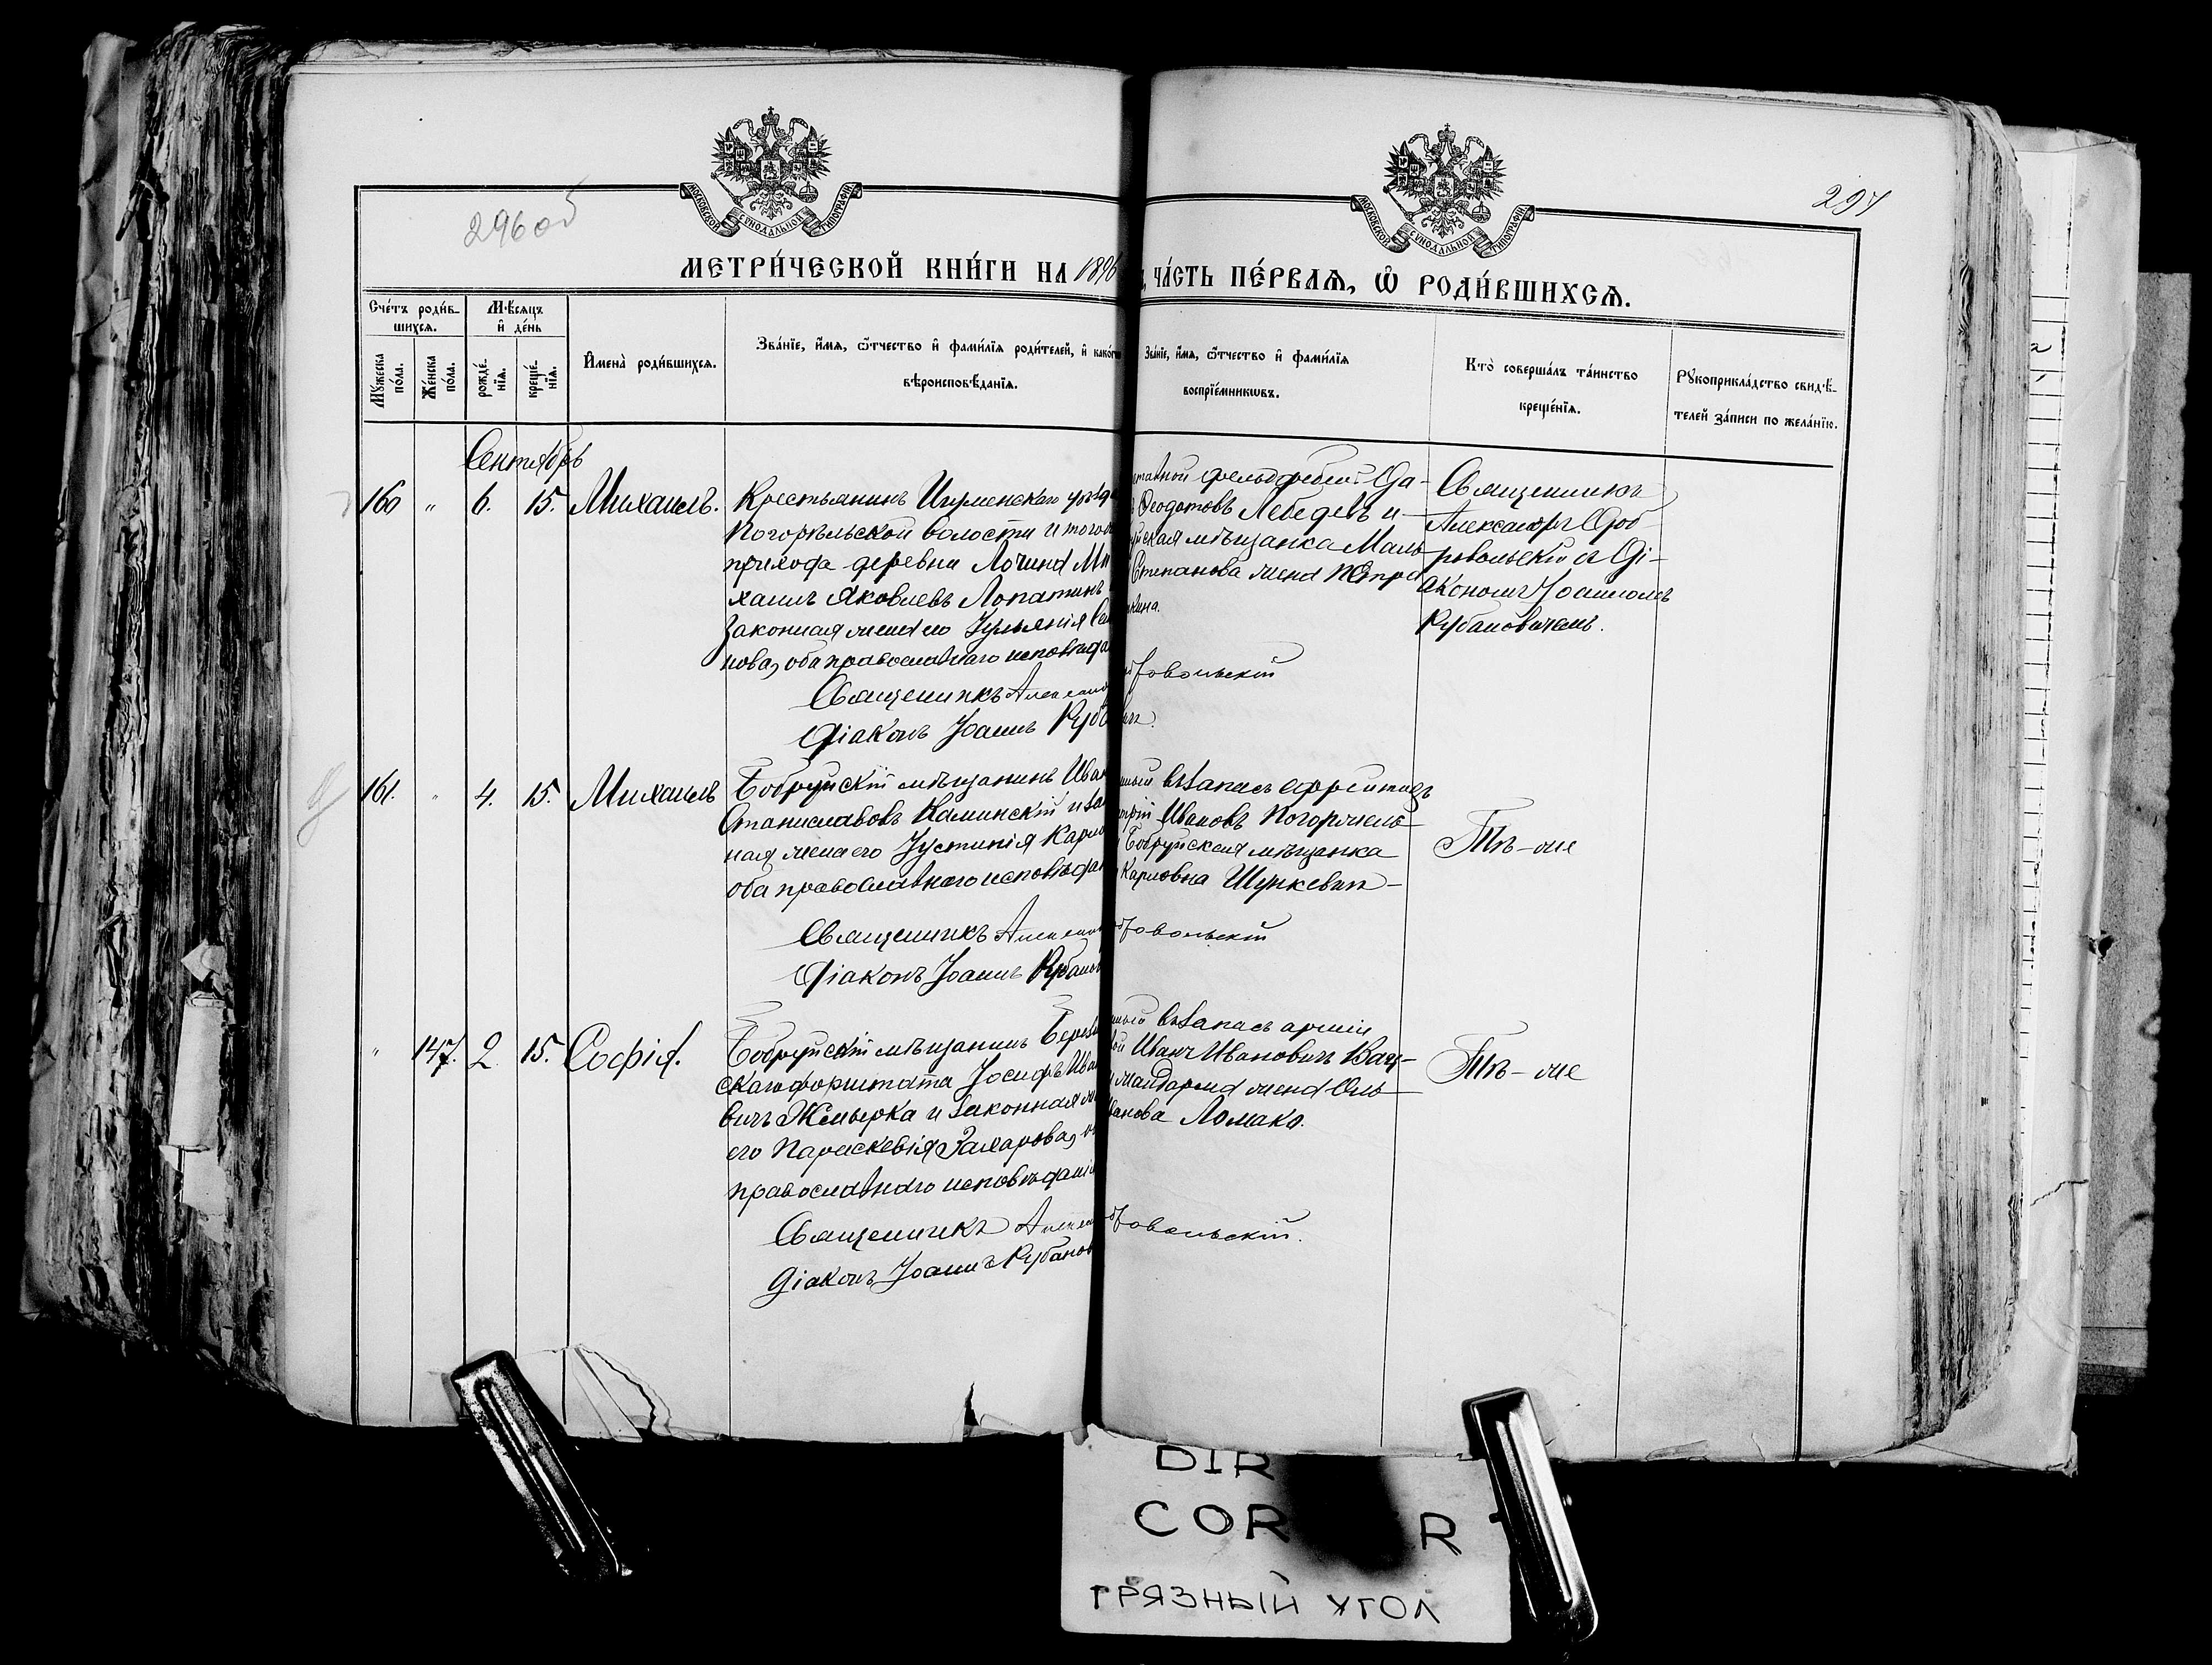 296об
297
МОСКОВСКОЙ СѴНОДАЛЬНОЙ ТИПОГРАФІИ
МОСКОВСКОЙ СѴНОДАЛЬНОЙ ТИПОГРАФІИ
МЕТРИ́ЧЕСКОЙ КНИ́ГИ НА 1896
ЧА́СТЬ ПЕ́РВАѦ, Ѽ РОДИ́ВШИХСѦ.
Сче́тъ роди́в-
шихсѧ.
Мꙋжеска по́ла.
Же́нска по́ла.
Мѣ́сѧцъ и҆ де́нь
рожде́-нїѧ.
креще́-нїѧ.
И҆мена̀ роди́вшихсѧ.
Зва́нїе, и҆́мѧ, ѻ҆́тчество и҆ фами́лїѧ роди́телей, и҆ како́гѡ
вѣроисповѣ́данїѧ.
Зва́нїе, и҆́мѧ, ѻ҆́тчество и҆ фами́лїѧ
воспрїе́мникѡвъ.
Кто̀ соверша́лъ та́инство
креще́нїѧ.
Рꙋкоприкла́дство свидѣ́-
телей за́писи по жела́нїю.
Сентябрь
160 " 6. 15. Михаилъ.
Крестьянинъ Игуменскаго уѣзд
Погорѣльской волости и того
прихода деревни Ми
хаилъ Яковлевъ Лопатинъ
законная жена его Іульянія
нова, оба православнаго исповѣда
Священникъ Александ
Діаконъ Іоаннъ Руб
фельдфебель Да-
Ѳеодотовъ Лебедевъ и
ская мѣщанка
Степанова жена
кина.
ровольскій
Священникъ
Александръ Доб-
ровольскій съ Ді-
акономъ Іоанномъ
Рубановичемъ.
161. " 4. 15. Михаилъ
Бобруйскій мѣщанинъ Иван
Станиславовъ Каминскій и за
ная жена его Іустинія Карло
оба православнаго исповѣдан
Священникъ Александ
Діаконъ Іоаннъ Рубанов
ный въ запасъ ефрейторъ
Ивановъ
Бобруйская мѣщанка
Карловна Шункевич-
ровольскій
Тѣ-же
" 147. 2. 15. Софія.
Бобруйскій мѣщанинъ Берез
скаго форштата Іосифъ Ива
вичъ Жмырка и законная ж
его Параскевія Захарова, о
православнаго исповѣдані
Священникъ Алексан
Діаконъ Іоаннъ Рубанов
ный въ запасъ арміи
Иванъ Ивановичъ
жандарма жена Оль-
ванова Ломако.
ровольскій.
Тѣ-же
DIR
COR R
ГРЯЗНЫЙ УГОЛ